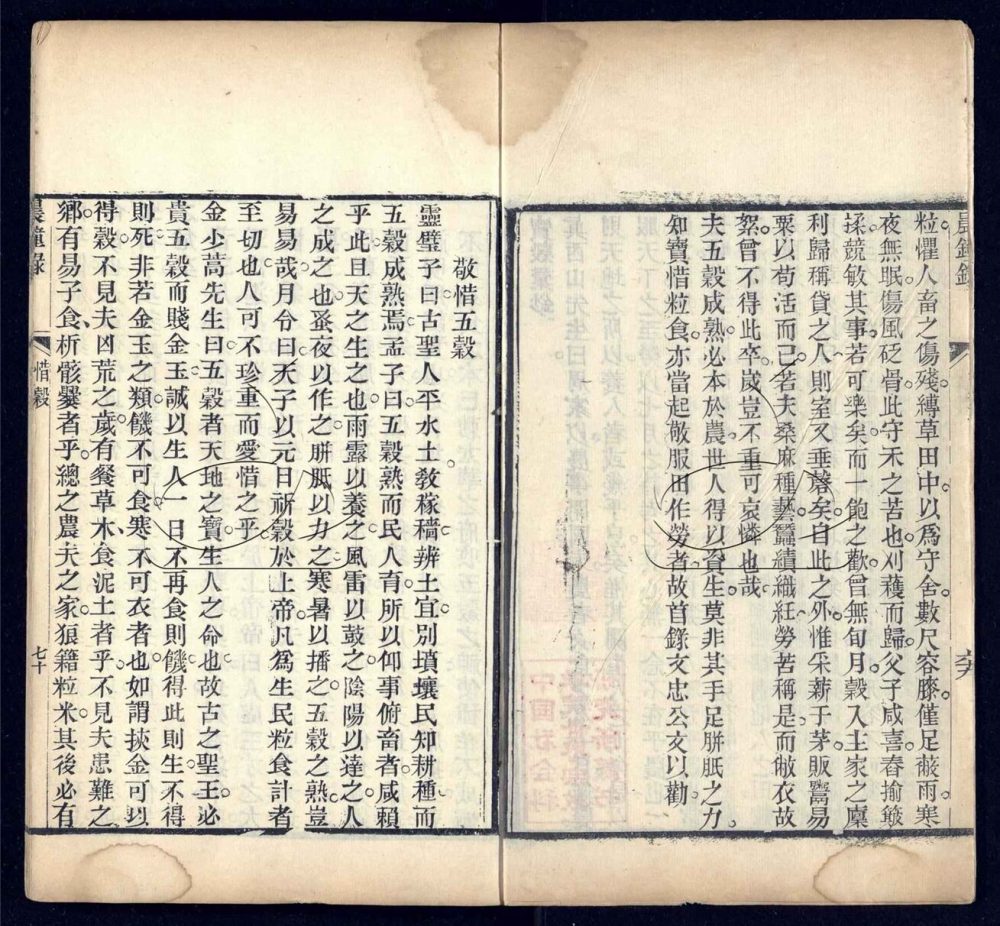 粒懼人畜之傷殘縛草田中以爲守舍數尺容膝僅足蔽雨寒
夜無眠傷風砭骨此守禾之苦也刈穫而歸父子咸喜舂揄簸
揉競敏其事若可樂矣而一飽之歡曾無旬月穀入主家之廩
利歸稱貸之人則室又垂罄矣自此之外惟采薪于茅販鬻易
粟以苟活而已若夫桑麻種藝蠶績織紝勞苦稱是而敝衣故
絮曾不得此卒歲豈不重可哀憐也哉
夫五穀成熟必本於農世人得以資生莫非其手足胼胝之力
知寶惜粒食亦當起敬服田作勞者故首錄文忠公文以勸
敬惜五穀
靈璧子曰古聖人平水土敎稼穡辨土宜別墳壤民知耕種而
五穀成熟焉孟子曰五穀熟而民人育所以仰事俯畜者咸賴
乎此且天之生之也雨露以養之風雷以鼓之陰陽以達之人
之成之也蚤夜以作之胼胝以力之寒暑以播之五穀之熟豈
易易哉月令曰天子以元日祈穀於上帝凡爲生民粒食計者
至切也人可不珍重而愛惜之乎
金少蒿先生曰五穀者天地之寶生人之命也故古之聖王必
貴五穀而賤金玉誠以生人一日不再食則饑得此則生不得
則死非若金玉之類饑不可食寒不可衣者也如謂挾金可以
得穀不見夫凶荒之歲有餐草木食泥土者乎不見夫患難之
鄉有易子食析骸爨者乎總之農夫之家狼籍粒米其後必有
惜穀
七十